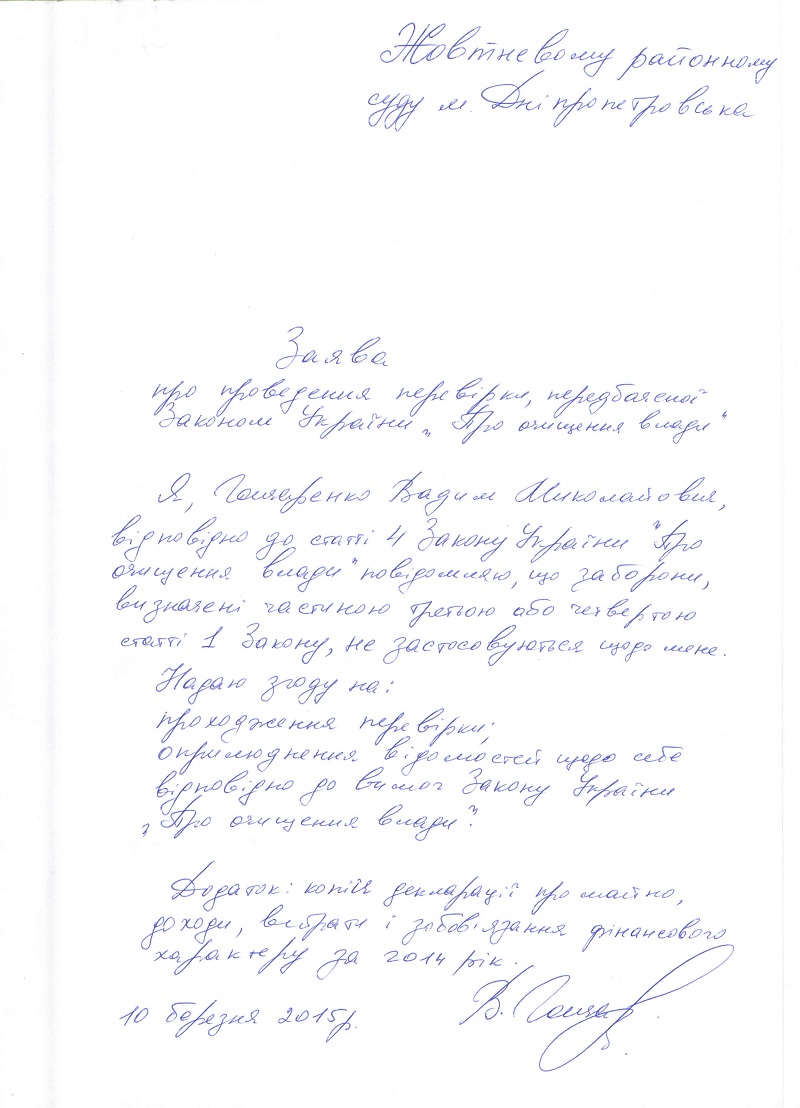 Жовтневому районному
суду м. Дніпропетровська
Заява
про проведення перевірки, передбаченої
Законом України „Про очищення влади"
Я, Гончаренко Вадим Миколайович,
відповідно до статті 4 Закону України "Про
очищення влади" повідомляю, що заборони,
визначені частиною третьою або четвертою
статті 1 Закону, не застосовуються щодо мене.
Надаю згоду на:
проходження перевірки;
оприлюднення відомостей щодо себе
відповідно до вимог Закону України
„Про очищення влади".
Додаток: копія декларації про майно,
доходи, витрати і зобов'язання фінансового
характеру за 2014 рік.
10 березня 2015р.
В.